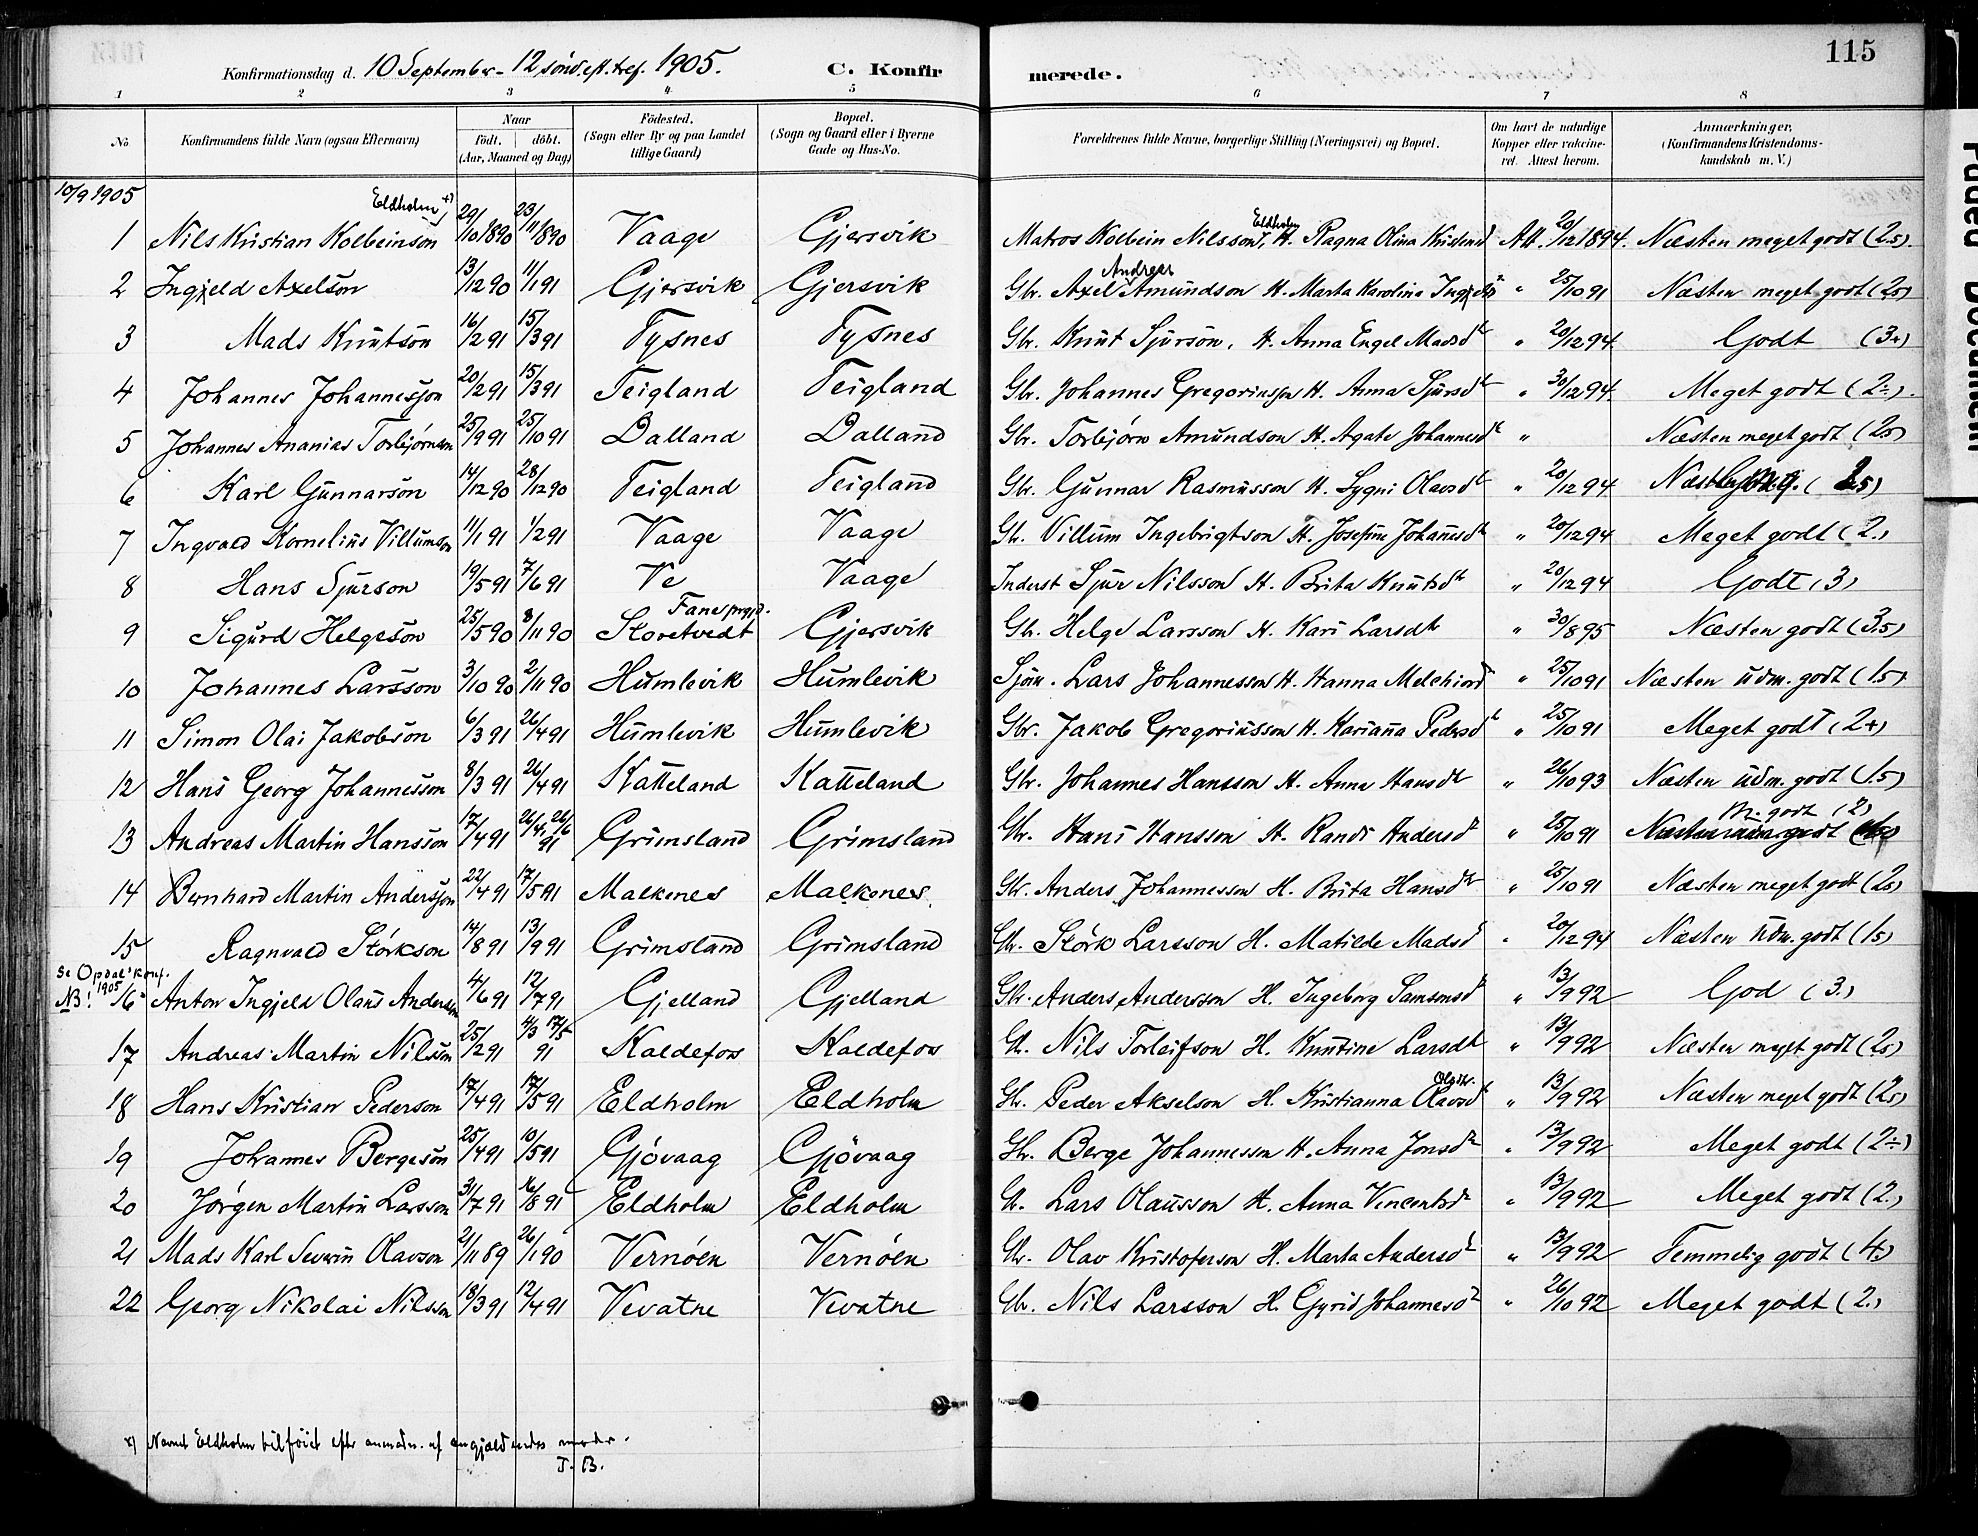 115
Konfirmationsdag d. 10 September - 12 sönd. eft. tref. 1905. C. Konfirmerede.
1 2 3 4 5 6 7 8
No. Konfirmandens fulde Navn (ogsaa Efternavn) Naar født. døbt. (Aar, Maaned og Dag) Fødested. (Sogn eller By og paa Landet tillige Gaard) Bopæl. (Sogn og Gaard eller i Byerne Gade og Hus-No. Forældrenes fulde Navne, borgerlige Stilling (Næringsvei) og Bopæl. Om havt de naturlige Kopper eller vakcineret. Attest herom. Anmærkninger, (Konfirmandens Kristendomskundskab m. V.)
10/9 1905
1 Nils Kristian Kolbeinson Eldholm x) 29/10 1890 23/11 1890 Vaage Gjersvik Matros Kolbein Nilsson Eldholm, H. Ragna Olina Kristensd Att. 20/12 1894. Næsten meget godt (2.5).
2 Ingjeld Axelson 13/12 90 11/1 91 Gjersvik Gjersvik Gbr. Axel Andreas Amundson H. Marta Karolina Ingjeldsd " 25/10 91 Næsten meget godt (2.5)
3 Mads Knutson 16/2 91 15/3 91 Tysnes Tysnes Gbr. Knut Sjurson, H. Anna Engel Madsdt " 20/12 94 Godt (3+)
4 Johannes Johannesson 20/2 91 15/3 91 Teigland Teigland Gbr. Johannes Gregoriusson H. Anna Sjursdt " 30/12 94 Meget godt (2÷).
5 Johannes Ananias Torbjørnson 25/9 91 25/10 91 Dalland Dalland Gbr. Torbjørn Amundson H. Agate Johannesdt " Næsten meget godt (2.5)
6 Karl Gunnarson 14/12 90 28/12 90 Teigland Teigland Gbr. Gunnar Rasmusson H. Sygni Olavsdt " 20/12 94 Næst. m. g. (2.5)
7 Ingvald Kornelius Villumson 11/1 91 1/2 91 Vaage Vaage Gb. Villum Ingebrigtson H. Josefine Johannesdt " 20/12 94 Meget godt (2.)
8 Hans Sjurson 19/5 91 7/6 91 Ve Vaage Inderst Sjur Nilsson H. Brita Knutsdt " 20/12 94 Godt (3)
9 Sigurd Helgeson 25/5 90 8/11 90 Storetvedt Fane prgjd. Gjersvik Gbr. Helge Larsson H. Kari Larsdt " 30/8 95 Næsten godt (3.5)
10 Johannes Larsson 3/10 90 2/11 90 Humlevik Humlevik Sjöm. Lars Johannesson H. Hanna Melchiorsd " 25/10 91 Næsten udm. godt (1.5)
11 Simon Olai Jakobson 6/3 91 26/4 91 Humlevik Humlevik Gbr. Jakob Gregoriusson H. Karianna Pedersdt " 25/10 91 Meget godt (2+)
12 Hans Georg Johannesson 8/3 91 26/4 91 Katteland Katteland Gbr. Johannes Hansson H. Anna Hansdt " 26/10 93 Næsten udm. godt (1.5)
13 Andreas Martin Hansson 17/4 91 26/4, 26/6 91 Grimsland Grimsland Gbr. Hans Hansson H. Randi Andersdt " 25/10 91 M. godt (2)
14 Bernhard Martin Andersson 22/4 91 17/5 91 Malkenes Malkenes Gbr. Anders Johannesson H. Brita Hansdt " 25/10 91 Næsten meget godt (2.5)
15 Ragnvald Størkson 14/8 91 13/9 91 Grimsland Grimsland Gbr. Størk Larsson H. Matilde Madsd " 20/12 94 Næsten udm. godt (1.5)
Se Opdal's konf. 1905
NB! 16 Anton Ingjeld Olaus Anderson 4/6 91 12/7 91 Gjelland Gjelland Gbr. Anders Andersson H. Ingeborg Samsonsdt " 13/9 92 God (3.)
17 Andreas Martin Nilsson 25/2 91 4/3 17/5 91 Kaldefos Kaldefos Gb. Nils Torleifson H. Knutine Larsdt " 13/9 92 Næsten meget godt (2.5)
18 Hans Kristian Pederson 17/4 91 17/5 91 Eldholm Eldholm Gbr. Peder Akselson H. Kristianna Olavsdt " 13/9 92 Næsten meget godt (2.5)
19 Johannes Bergeson 25/4 91 10/5 91 Gjövaag Gjövaag Gbr. Berge Johannesson H. Anna Jonsdt " 13/9 92 Meget godt (2÷)
20 Jørgen Martin Larsson 31/7 91 16/8 91 Eldholm Eldholm Gb. Lars Olausson H. Anna Vincentsdt " 13/9 92 Meget godt (2.)
21 Mads Karl Severin Olavson 21/11 89 26/1 90 Vernöen Vernöen Gbr. Olav Kristoferson H. Marta Andersdt " 13/9 92 Temmelig godt (4.)
22 Georg Nikolai Nilsson 18/3 91 12/4 91 Vevatne Vevatne Gbr. Nils Larsson H. Gyrid Johannesdt " 26/10 92 Meget godt (2.)
x) Navnet Eldholm tilföiet efter anmodn. af angjældendes moder.
J. B.
Faded Document